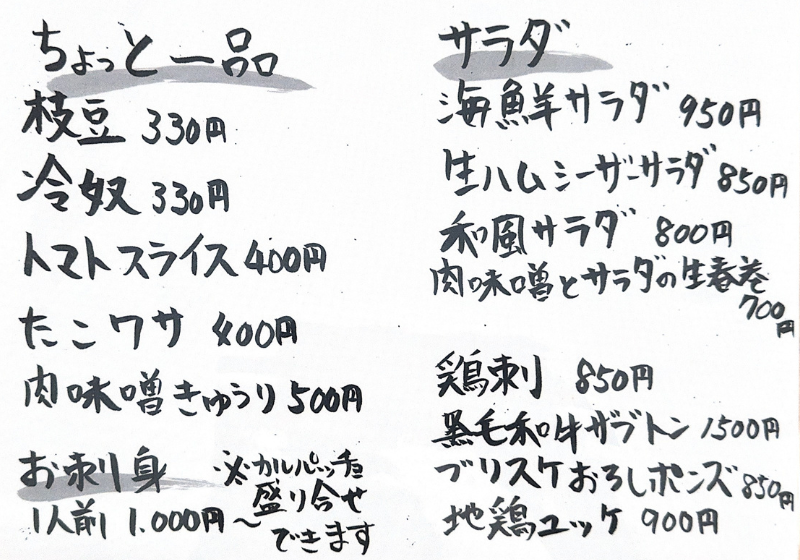 ちょっと一品
枝豆 330円
冷奴 330円
トマトスライス 400円
たこワサ 400円
肉味噌きゅうり 500円
お刺り身
1人前 1.000円〜
※カルパッチョ
盛り合せ
できます
サラダ
海鮮サラダ 950円
生ハムシーザーサラダ 850円
和風サラダ 800円
肉味噌とサラダの生春巻
700円
鶏刺り 850円
黒毛和牛ザブトン 1500円
ブリスケおろしポンズ 850円
地鶏ユッケ 900円